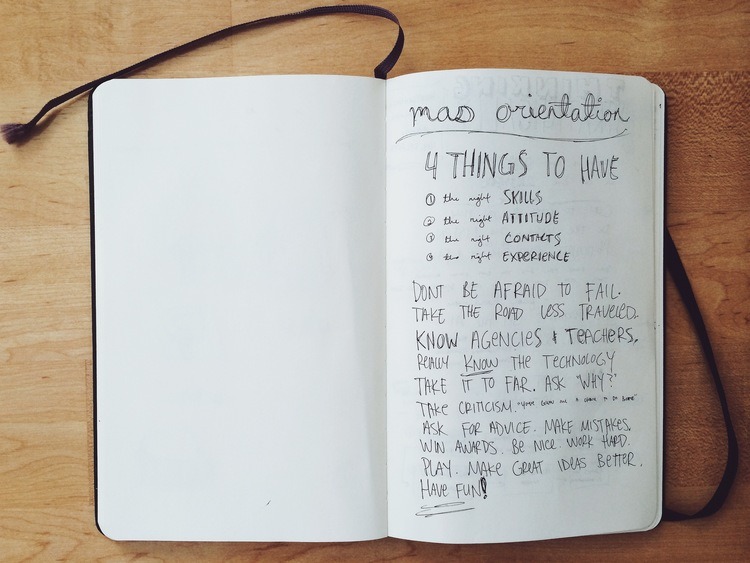 mad orientation
4 THINGS TO HAVE
① the right SKILLS
② the right ATTITUDE
③ the right CONTACTS
④ the right EXPERIENCE
DONT BE AFRAID TO FAIL.
TAKE THE ROAD LESS TRAVELED.
KNOW AGENCIES & TEACHERS.
REALLY KNOW THE TECHNOLOGY
TAKE IT TO FAR. ASK "WHY?"
TAKE CRITICISM. A CHANCE TO DO
ASK FOR ADVICE. MAKE MISTAKES.
WIN AWARDS. BE NICE. WORK HARD.
PLAY. MAKE GREAT IDEAS BETTER.
HAVE FUN!